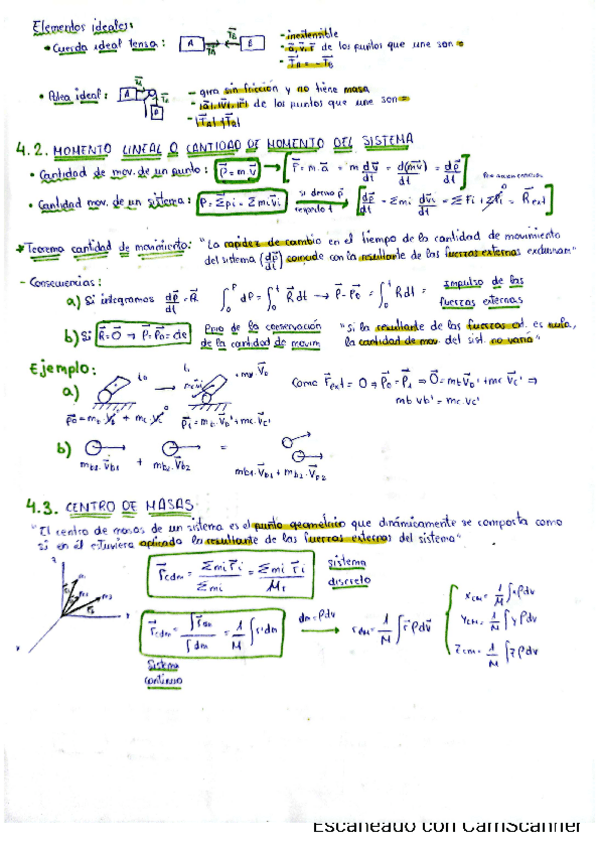 Elementos ideales:
• Cuerda ideal tensa: A T⃗A T⃗B B - inextensible
- a⃗, v⃗, r⃗ de los puntos que une son =
- T⃗A = - T⃗B
• Polea ideal: A T⃗A T⃗B B - gira sin fricción y no tiene masa
- |a⃗|, |v⃗|, |r⃗| de los puntos que une son =
- |T⃗A| = |T⃗B|
4.2. MOMENTO LINEAL O CANTIDAD DE MOMENTO DEL SISTEMA
• Cantidad de mov. de un punto: p⃗ = m·v⃗ → F⃗ = m·a⃗ = m dv⃗/dt = d(mv⃗)/dt = dp⃗/dt
• Cantidad mov. de un sistema: P = Σpi = Σmiv⃗i si derivo p⃗ respecto t → dp⃗/dt = Σmi dv⃗i/dt = ΣFi + ΣFi 0 = R⃗ext
* Teorema cantidad de movimiento: "La rapidez de cambio en el tiempo de la cantidad de movimiento
del sistema (dp⃗/dt) coincide con la resultante de las fuerzas externas exclusivam"
- Consecuencias:
a) Si integramos dp⃗/dt = R⃗ ∫₀ᴾ dP = ∫₀ᵗ R⃗dt → P⃗ - P⃗0 = ∫₀ᵗ Rdt = impulso de las fuerzas externas
b) Si R⃗ = 0⃗ → P⃗ = P⃗0 = cte Ppio de la conservación de la cantidad de movim "Si la resultante de las fuerzas ext. es nula,
la cantidad de mov. del sist. no varía"
Ejemplo:
a) t0 t1 Como F⃗ext = 0 ⇒ P⃗0 = P⃗1 ⇒ 0⃗ = mb v⃗b' + mc v⃗c' ⇒
mb vb' = mc·vc'
P⃗0 = mb·v⃗b + mc·v⃗c 0 P⃗1 = mb·v⃗b' + mc·v⃗c'
b) =
mb1·v⃗b1 + mb2·v⃗b2 mb1·v⃗b1 + mb2·v⃗b2
4.3. CENTRO DE MASAS
"El centro de masas de un sistema es el punto geométrico que dinámicamente se comporta como
si en él estuviera aplicada la resultante de las fuerzas externas del sistema"
r⃗cdm = Σmi r⃗i / Σmi = Σmi r⃗i / Mt sistema discreto
r⃗cdm = ∫r⃗dm / ∫dm = 1/M ∫r⃗dm dm = ρdv → rcdm = 1/M ∫r⃗ρdv
Sistema continuo
xcm = 1/M ∫xρdv
ycm = 1/M ∫yρdv
zcm = 1/M ∫zρdv
Escaneado con CamScanner